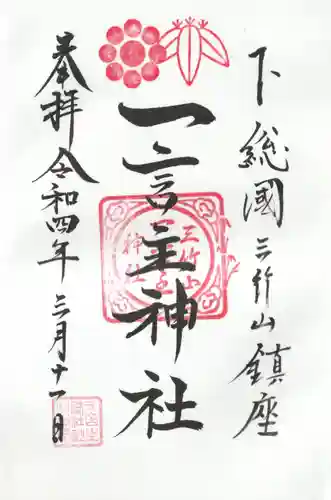 下総國三竹山鎮座
一言主神社
奉拝令和四年三月十一日
三竹山
神社